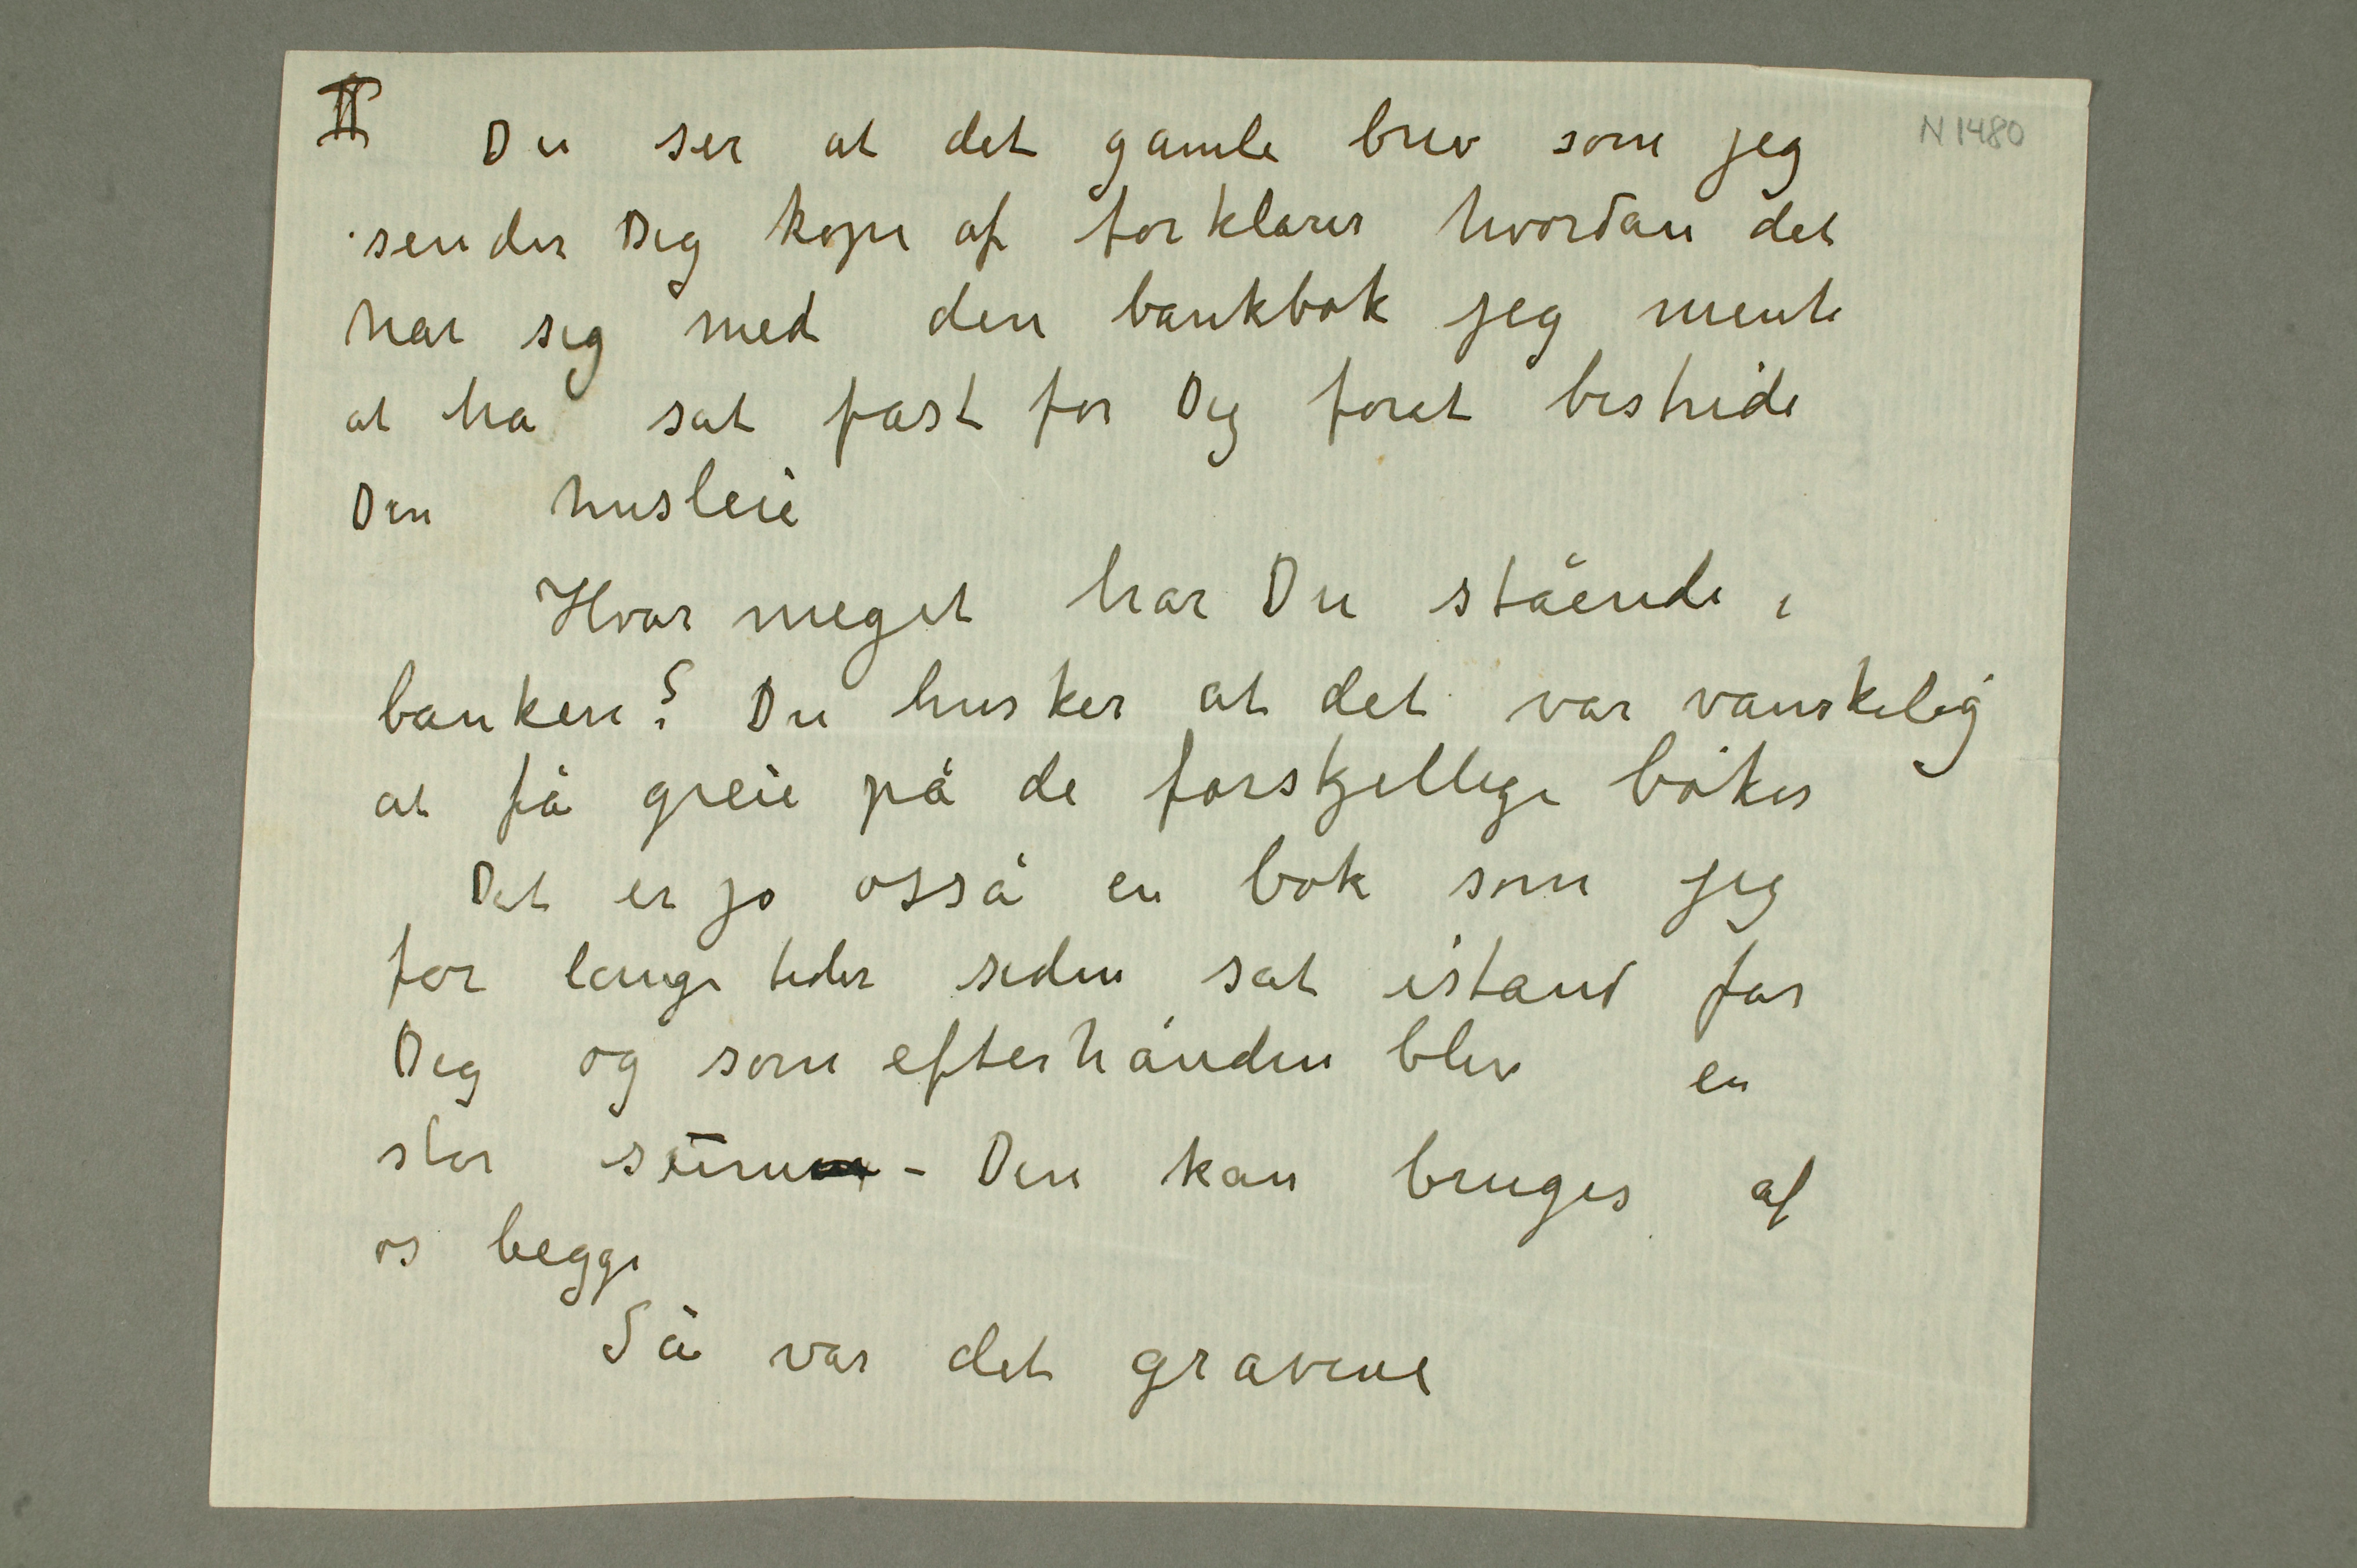 II Du ser at det gamle brev som jeg
N 1480
sender Dig kopi af forklarer hvordan det
har sig med den bankbok jeg mente
at ha sat fast for Dig forat bestride
Din husleie
Hvor meget har Du stående i
banken? Du husker at det var vanskelig
at få greie på de forskjellige bøker
Det er jo osså en bok som jeg
for lange tider siden sat istand for
Dig og som efterhånden blev en
stor sum – Den kan bruges af
os begge
Så var det gravene